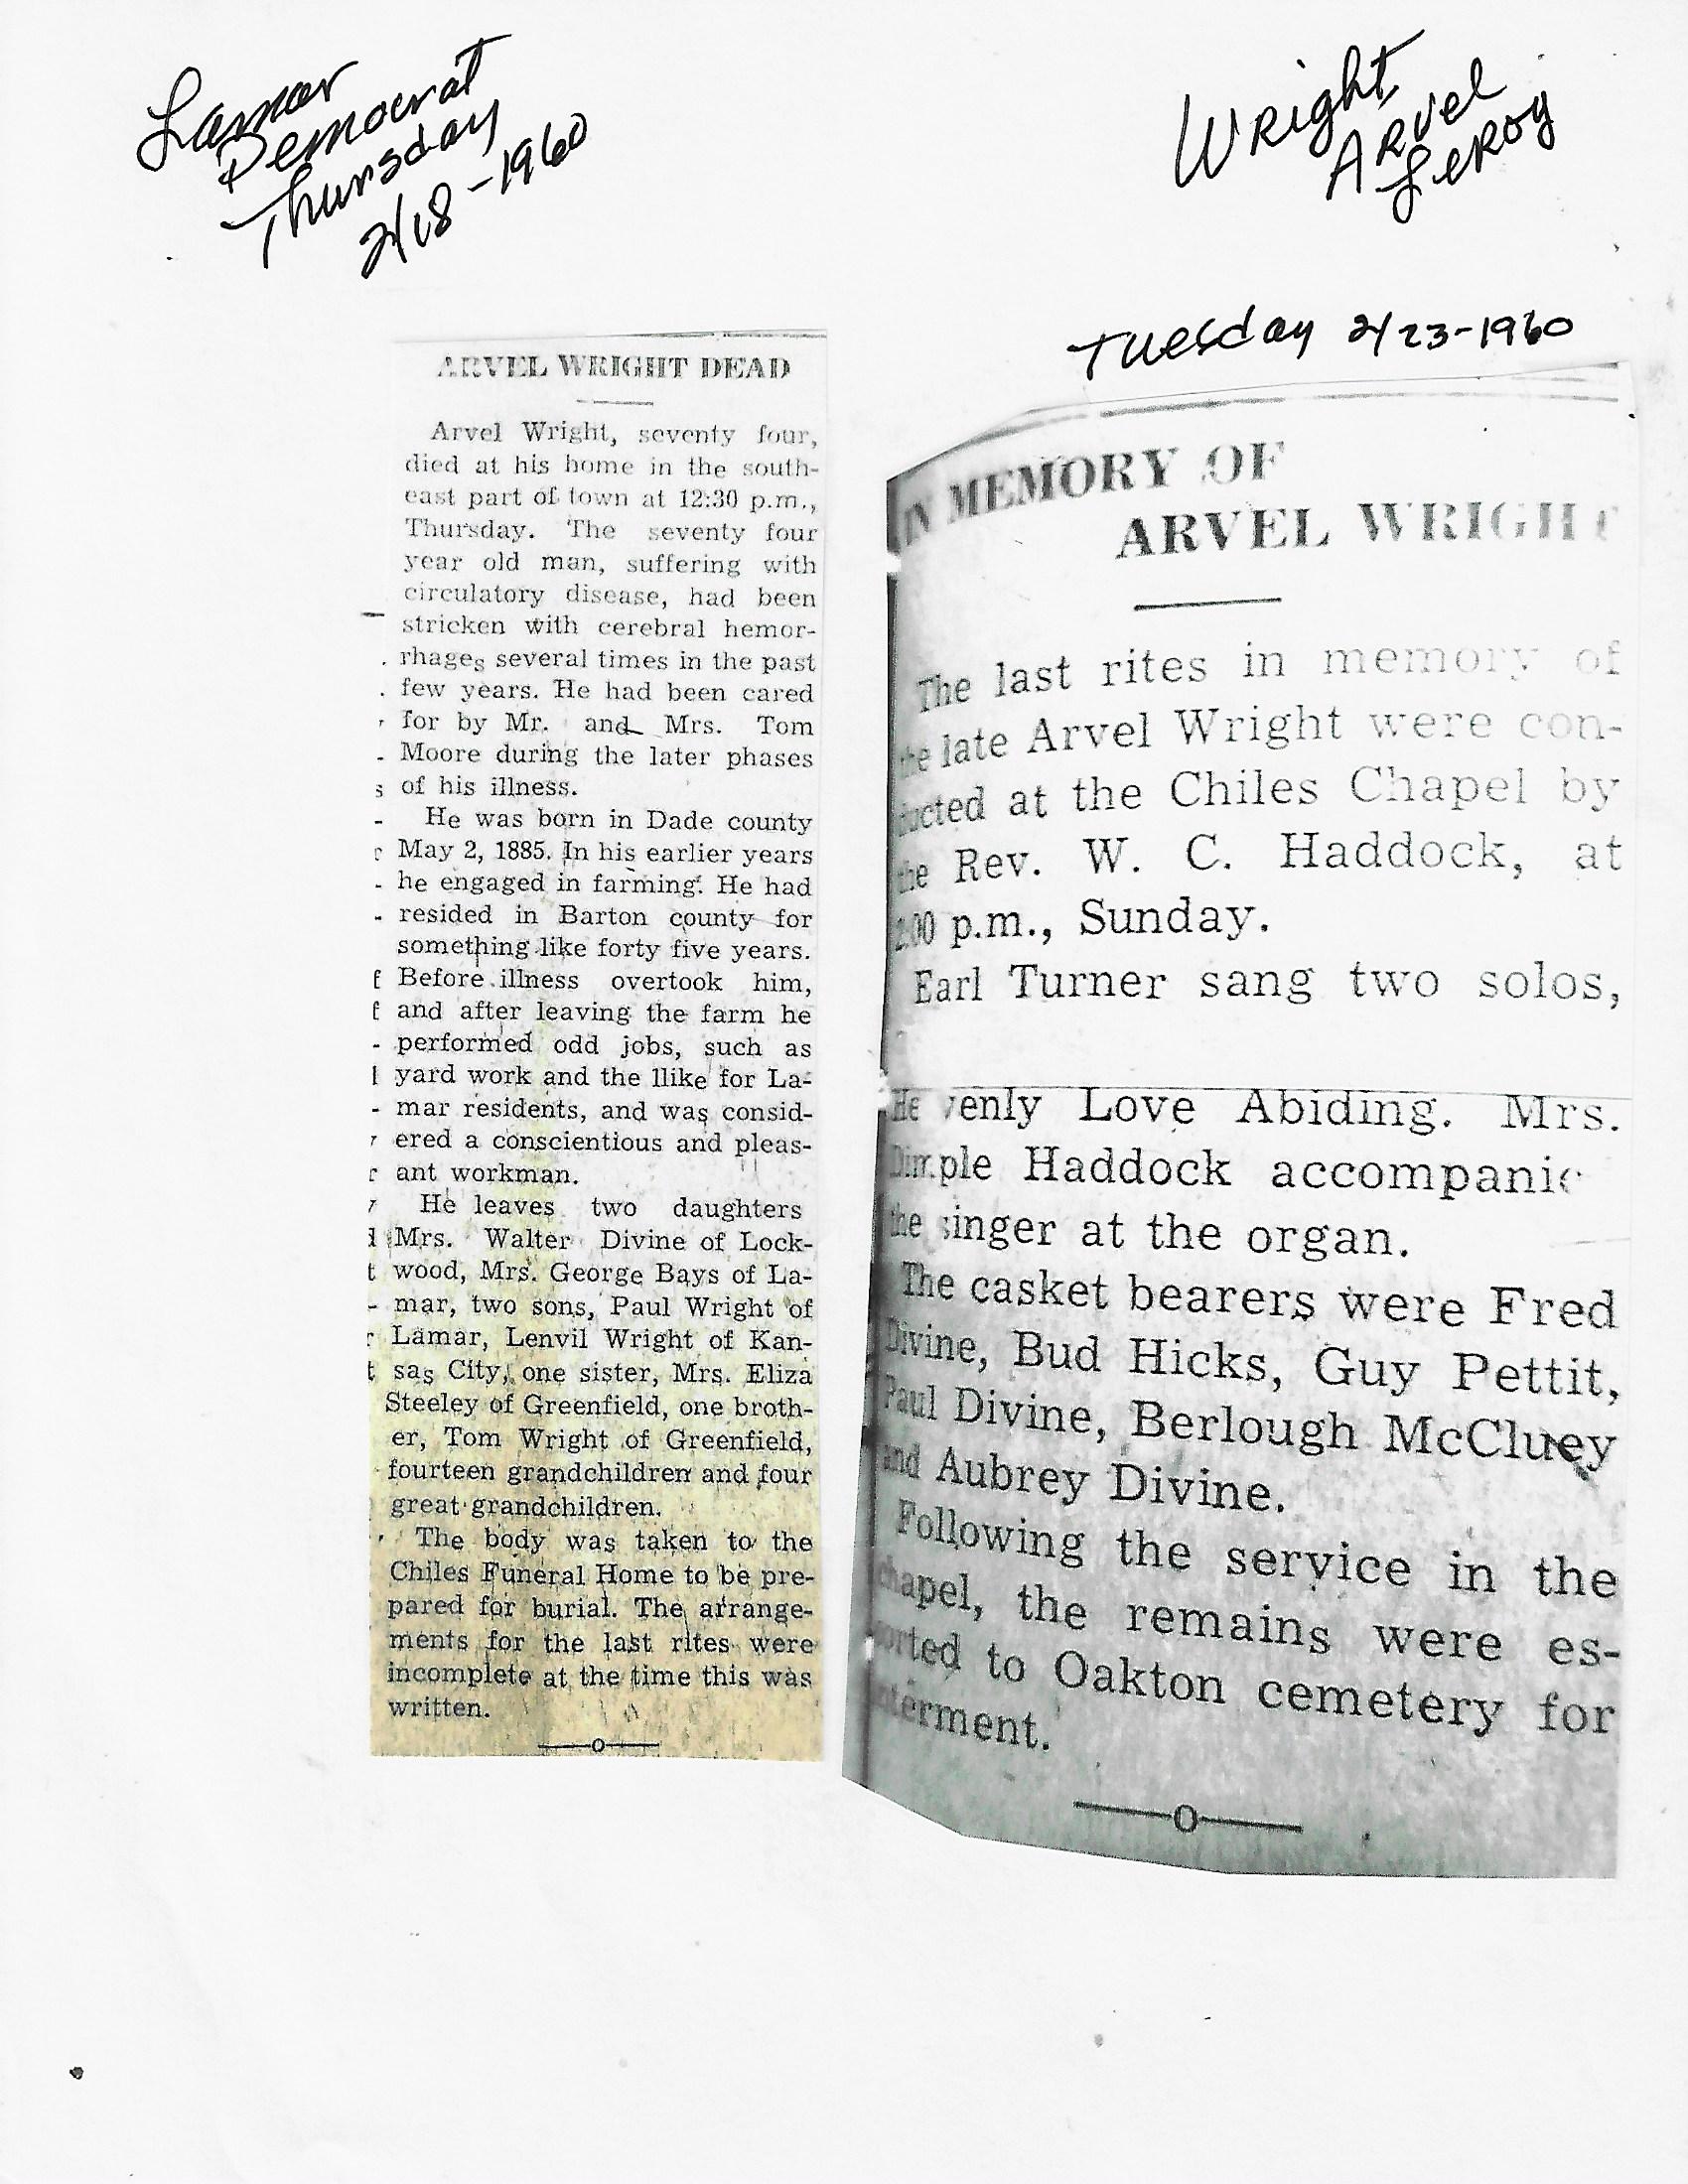 Lamar
Democrat
Thursday
2/18-1960
Wright,
Arvel
LeRoy
ARVEL WRIGHT DEAD
Arvel Wright, seventy four,
died at his home in the south-
east part of town at 12:30 p.m.,
Thursday. The seventy four
year old man, suffering with
circulatory disease, had been
stricken with cerebral hemor-
rhages several times in the past
few years. He had been cared
for by Mr. and Mrs. Tom
Moore during the later phases
of his illness.
He was born in Dade county
May 2, 1885. In his earlier years
he engaged in farming. He had
resided in Barton county for
something like forty five years.
Before illness overtook him,
and after leaving the farm he
performed odd jobs, such as
yard work and the llike for La-
mar residents, and was consid-
ered a conscientious and pleas-
ant workman.
He leaves two daughters
Mrs. Walter Divine of Lock-
wood, Mrs. George Bays of La-
mar, two sons, Paul Wright of
Lamar, Lenvil Wright of Kan-
sas City, one sister, Mrs. Eliza
Steeley of Greenfield, one broth-
er, Tom Wright of Greenfield,
fourteen grandchildren and four
great grandchildren.
The body was taken to the
Chiles Funeral Home to be pre-
pared for burial. The arrange-
ments for the last rites were
incomplete at the time this was
written.
Tuesday 2/23-1960
IN MEMORY OF
ARVEL WRIGHT
The last rites in memory of
the late Arvel Wright were con-
ducted at the Chiles Chapel by
the Rev. W. C. Haddock, at
2:00 p.m., Sunday.
Earl Turner sang two solos,
Heavenly Love Abiding. Mrs.
Dimple Haddock accompanie
the singer at the organ.
The casket bearers were Fred
Divine, Bud Hicks, Guy Pettit,
Paul Divine, Berlough McCluey
and Aubrey Divine.
Following the service in the
chapel, the remains were es-
corted to Oakton cemetery for
interment.